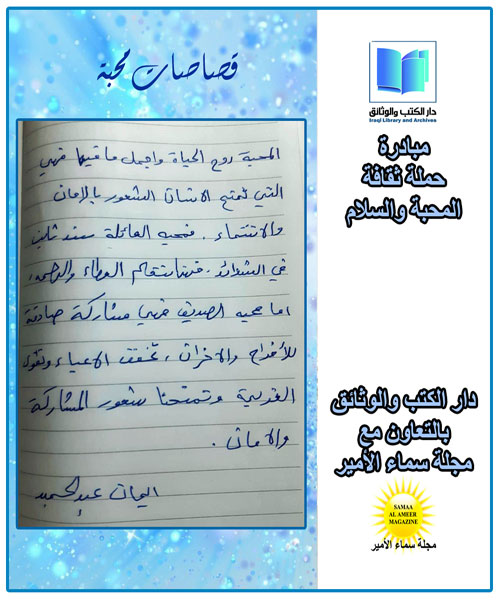 قصاصات محبة
المحبة روح الحياة واجمل ما فيها فهي
التي تمنح الانسان الشعور بالامان
والانتماء . فمحبة العائلة سند ثابت
في الشدائد . فيها نتعلم العطاء والرحمة ،
اما محبة الصديق فهي مشاركة صادقة
للأفراح والاحزان ، تخفف الاعباء وتقوي
وتمنحنا شعور المشاركة
والامان .
ايمان عبدالحميد
دار الكتب والوثائق
Iraqi Library and Archives
مبادرة
حملة ثقافة
المحبة والسلام
دار الكتب والوثائق
بالتعاون مع
مجلة سماء الأمير
SAMAA
AL AMEER
MAGAZINE
مجلة سماء الأمير